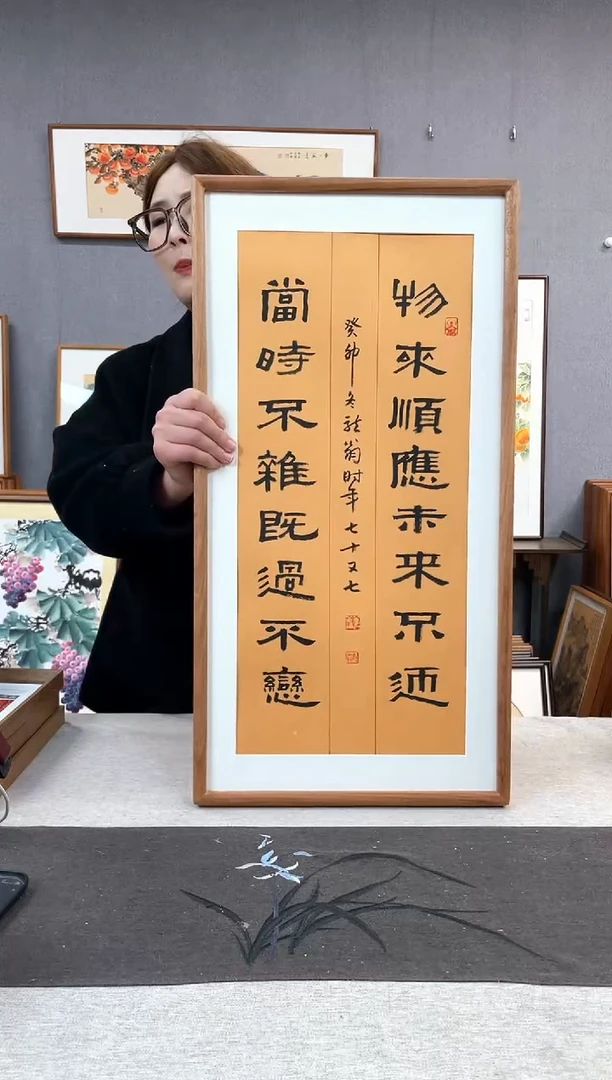 物來順應未来不迎
癸卯冬翁时年七十又七
當時不雜既過不戀